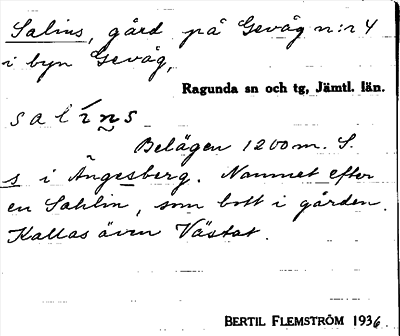 Salins, gård på Gevåg n:r 4
i byn Gevåg,
Ragunda sn och tg, Jämtl. län.
salíns
Belägen 1200 m. S.
s i Ängesberg. Namnet efter
en Sahlin, som bott i gården.
Kallas även Västat.
BERTIL FLEMSTRÖM 1936.